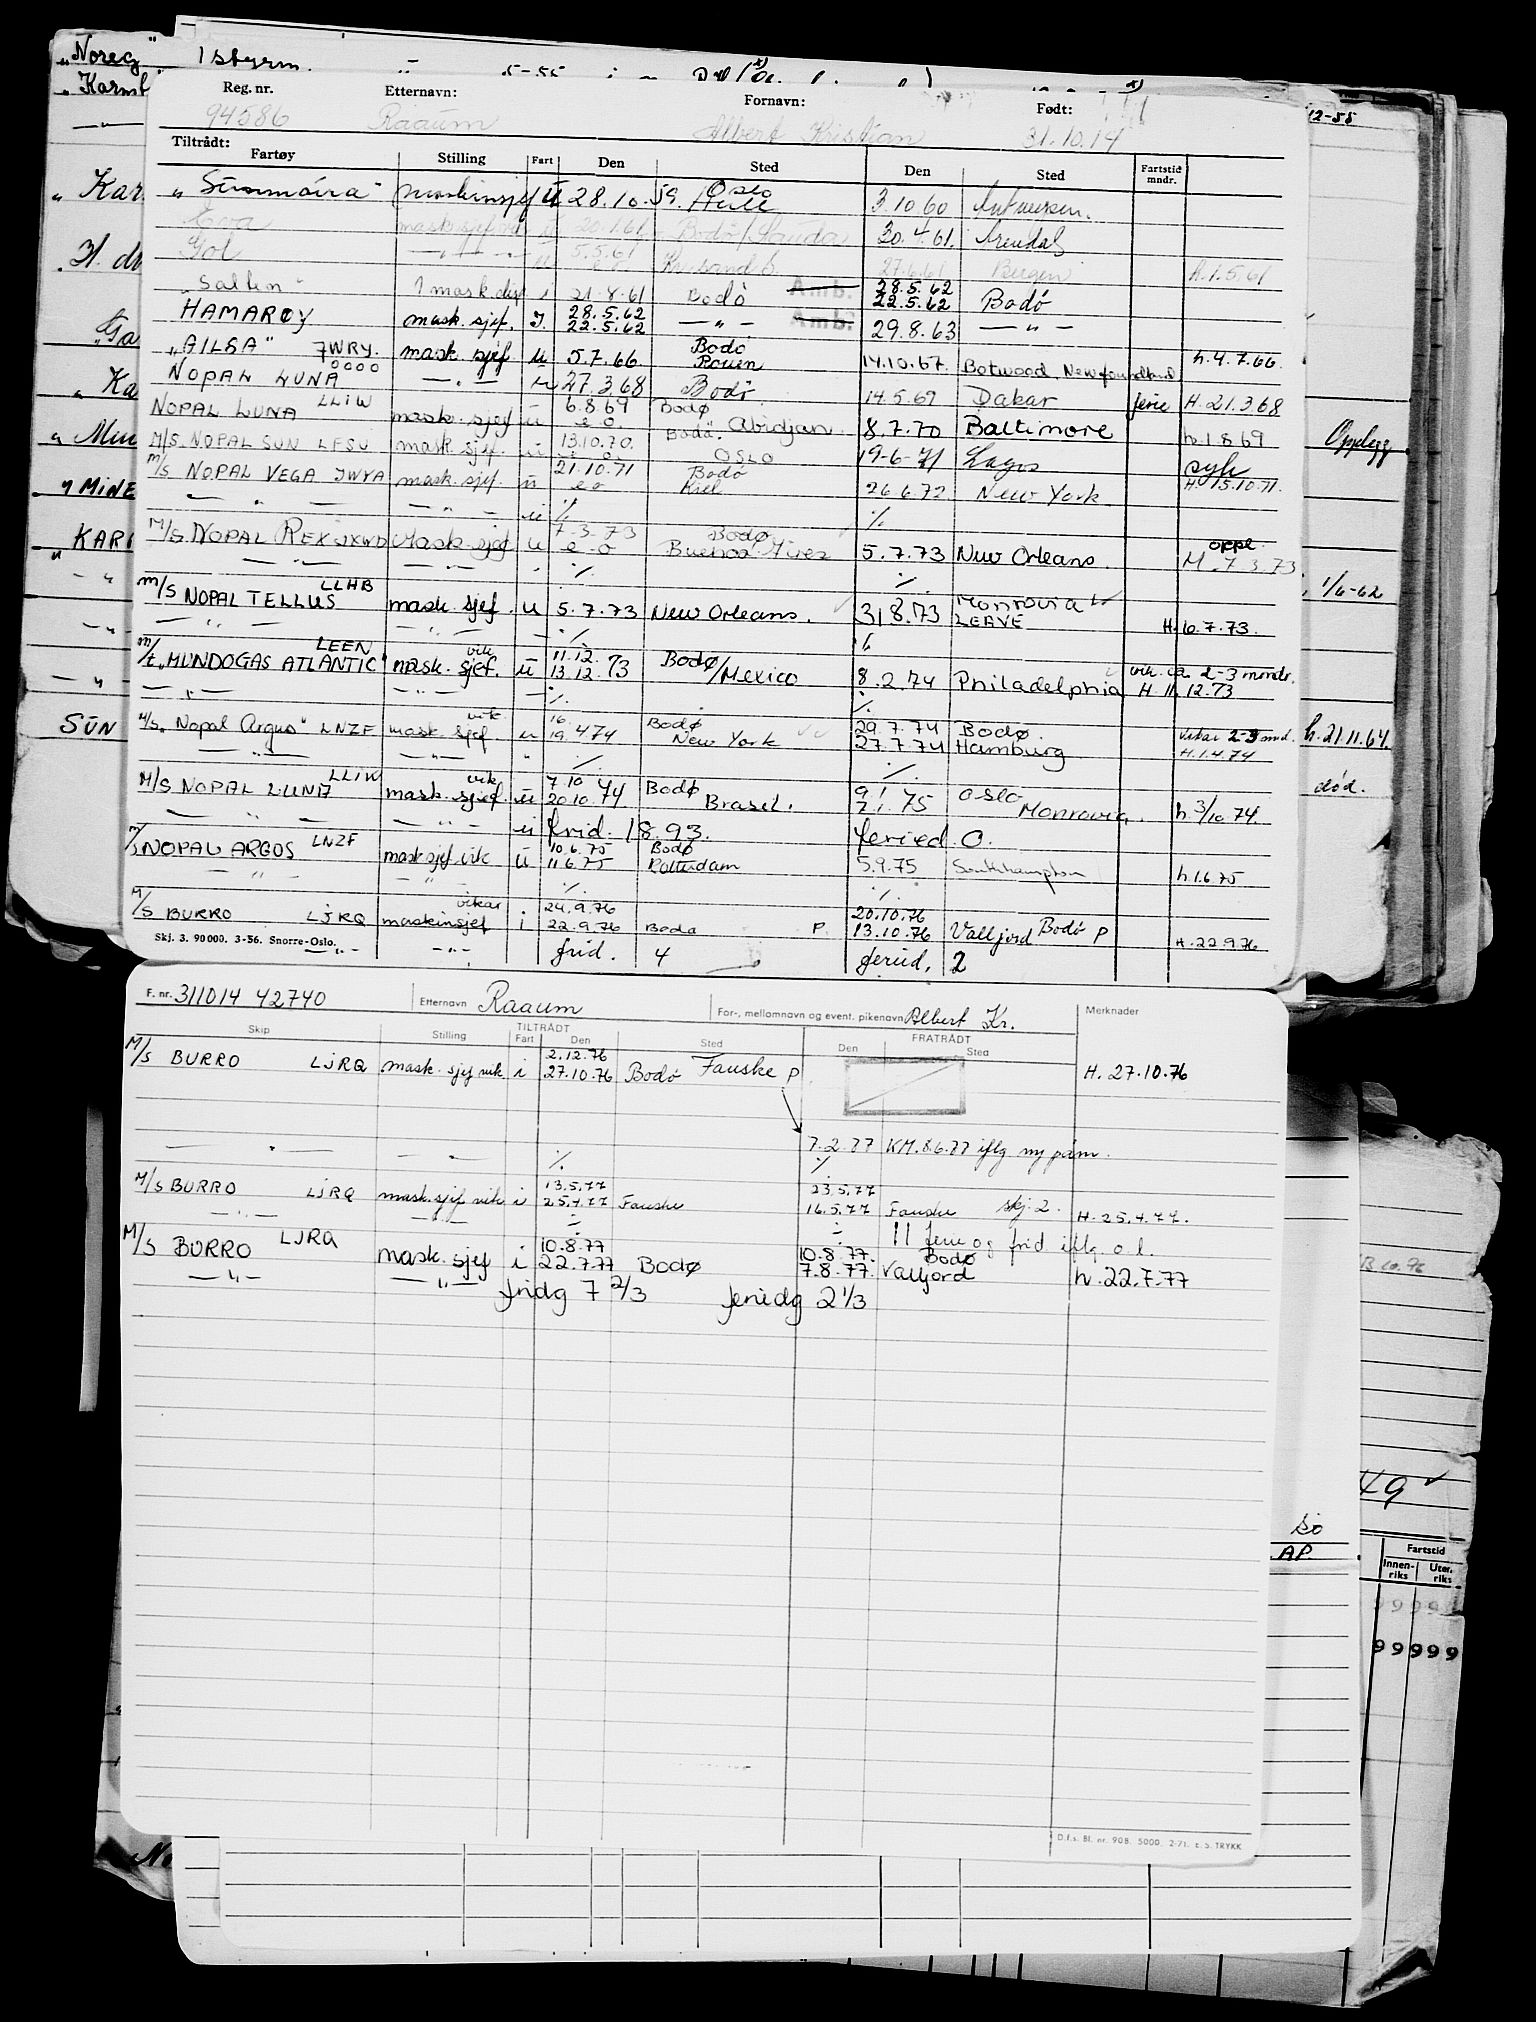 "Noreg" 1 styrm. 5-55
"Karmt
12-55
Reg. nr. Etternavn: Fornavn: Født:
94586 Raaum Albert Kristian 31.10.14
Tiltrådt:
Fartøy Stilling Fart Den Sted Den Sted Fartstid mndr.
Oslo
maskinsjef U 28.10.59. Hull 3.10.60 Antwerpen.
Eva mask sjef 20.1.61 Bodø 30.4.61. Arendal
Gol 5.5.61 Krisand S. 27.6.61 Bergen h.1.5.61
28.5.62
"Salten" 1 mask i 21.8.61 Bodö Amb. 22.5.62 Bodö
28.5.62
HAMARØY mask. sjef. I. 22.5.62 — " — Amb. 29.8.63 — " —
Bodö
"AILSA" 7WRY. mask. sjef u 5.7.66. Rouen 14.10.67. Botwood, Newfoundland h.4.7.66.
0000
NOPAL LUNA — " — u 27.3.68 Bodö 14.5.69 Dakar ferie H.21.3.68
LLIW 6.8.69 Bodø
NOPAL LUNA mask. sjef u e.o. Abidjan. 8.7.70 Baltimore h.1.8.69
13.10.70. Bodö.
M/S. NOPAL SUN LFSU mask. sjef. u OSLO 19-6-71 Lagos syk
21.10.71 Bodö
M/S NOPAL VEGA JWYA mask. sjef. u e o Kiel 26.6.72 New York H. 15.10.71.
— " — — " — u ./. ./.
7.3.73 Bodø oppl.
M/S NOPAL REX JXWD Mask. sjef u e o Buenos Aires 5.7.73 New Orleans. M. 7.3.73
— " — — " — ./. ./.
LLHB Monrovia
M/S NOPAL TELLUS mask. sjef. u 5.7.73 New Orleans. 31.8.73 LEAVE H. 6.7.73.
— " — — " — ./. ./.
LEEN vik. 11.12.
M/T "MUNDOGAS ATLANTIC" mask. sjef. u 13.12.73 Bodø/Mexico 8.2.74 Philadelphia vik. ca 2-3 mndr.
— " — — " — ./. ./. H. 11.12.73
vik. 16. Bodø 29.7.74 Bodø.
M/S "Nopal Argus" LNZF mask. sjef u 19.4.74 New York 27.7.74 Hamburg vikar 2-3 md.
— " — — " — ./. ./. H.1.4.74
LLIW vik. 7.10 Bodø 9.1 OSLO
M/S NOPAL LUNA mask. sjef. u 20.10.74 Brasil. 7.1.75 Monrovia. h. 3/10.74.
— " — — " — u frid. 18.93. feried. 0.
LNZF 10.6.75 Bodø
M/S NOPAL ARGOS mask sjef vik u 11.6.75 Rotterdam 5.9.75 Southhampton h.1.6.75
— " — — " — ./. ./.
vikar 24.9.76 20.10.76
M/S BURRO LJRQ maskinsjef i 22.9.76 Bodø P. 13.10.76 Valljord Bodö P H.22.9.76
Skj. 3. 90000. 3-56. Snorre-Oslo. — " — frid. 4 feried. 2
F. nr. 311014 42740 Etternavn Raaum For-, mellomnavn og event. pikenavn Albert Kr. Merknader
TILTRÅDT FRATRÅDT
Skip Stilling Fart Den Sted Den Sted
2.12.76
M/S BURRO LJRQ mask. sjef vik i 27.10.76 Bodö Fauske P H. 27.10.76
— " — — " — ./. 7.2.77 KM. 8.6.77 iflg ny påm.
./.
13.5.77 23.5.77
M/S BURRO LJRQ mask. sjef vik i 25.4.77 Fauske 16.5.77 Fauske skj. 2. H. 25.4.77.
— " — — " — ./. ./. 11 ferie og frid iflg. o.l.
LJRQ 10.8.77 10.8.77. Bodø
M/S BURRO mask. sjef i 22.7.77 Bodø 7.8.77. Valljord h. 22.7.77
— " — — " —
fridg 7 2/3 feriedg 2 1/3
D.f.s. Bl. nr. 908. 5000. 2-71. E.S. TRYKK
"Kar
"Ga
"Ka
Opplegg
"MINE
"KARI
1/6-62
SUN
h. 21.11.64.
død.
49
sø
AP.
Fartstid
Innen-riks Uten-riks
9999
99999